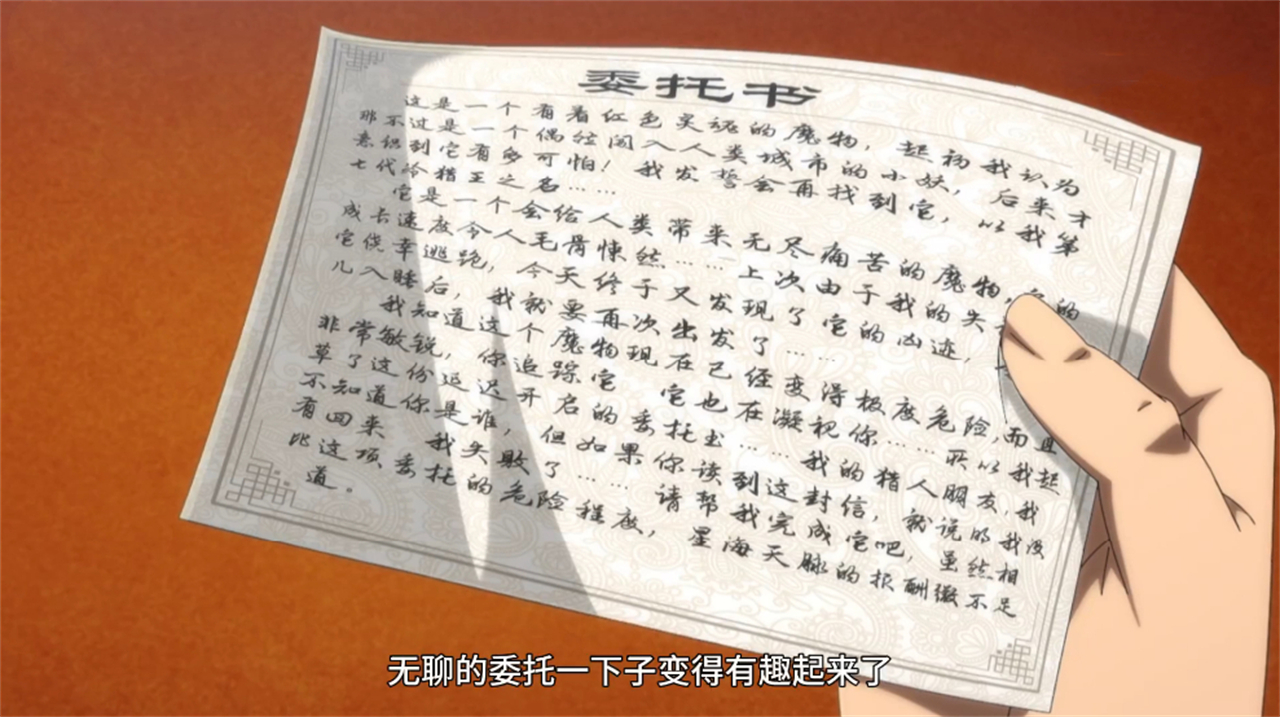 委托书
这是一个有着红色灵魂的魔物，起初我认为
那不过是一个偶然闯入人类城市的小妖，后来才
意识到它有多可怕！我发誓会再找到它，以我第
七代冷猎王之名……
它是一个会给人类带来无尽痛苦的魔物，它的
成长速度令人毛骨悚然……上次由于我的失
它侥幸逃跑，今天终于又发现了它的凶迹，
儿入睡后，我就要再次出发了……
我知道这个魔物现在已经变得极度危险，而且
非常敏锐，你追踪它 它也在凝视你……所以我起
草了这份延迟开启的委托书……我的猎人朋友，我
不知道你是谁，但如果你读到这封信，就说明我没
有回来 我失败了……请帮我完成它吧，虽然相
比这项委托的危险程度，星海天脉的报酬微不足
道。
无聊的委托一下子变得有趣起来了